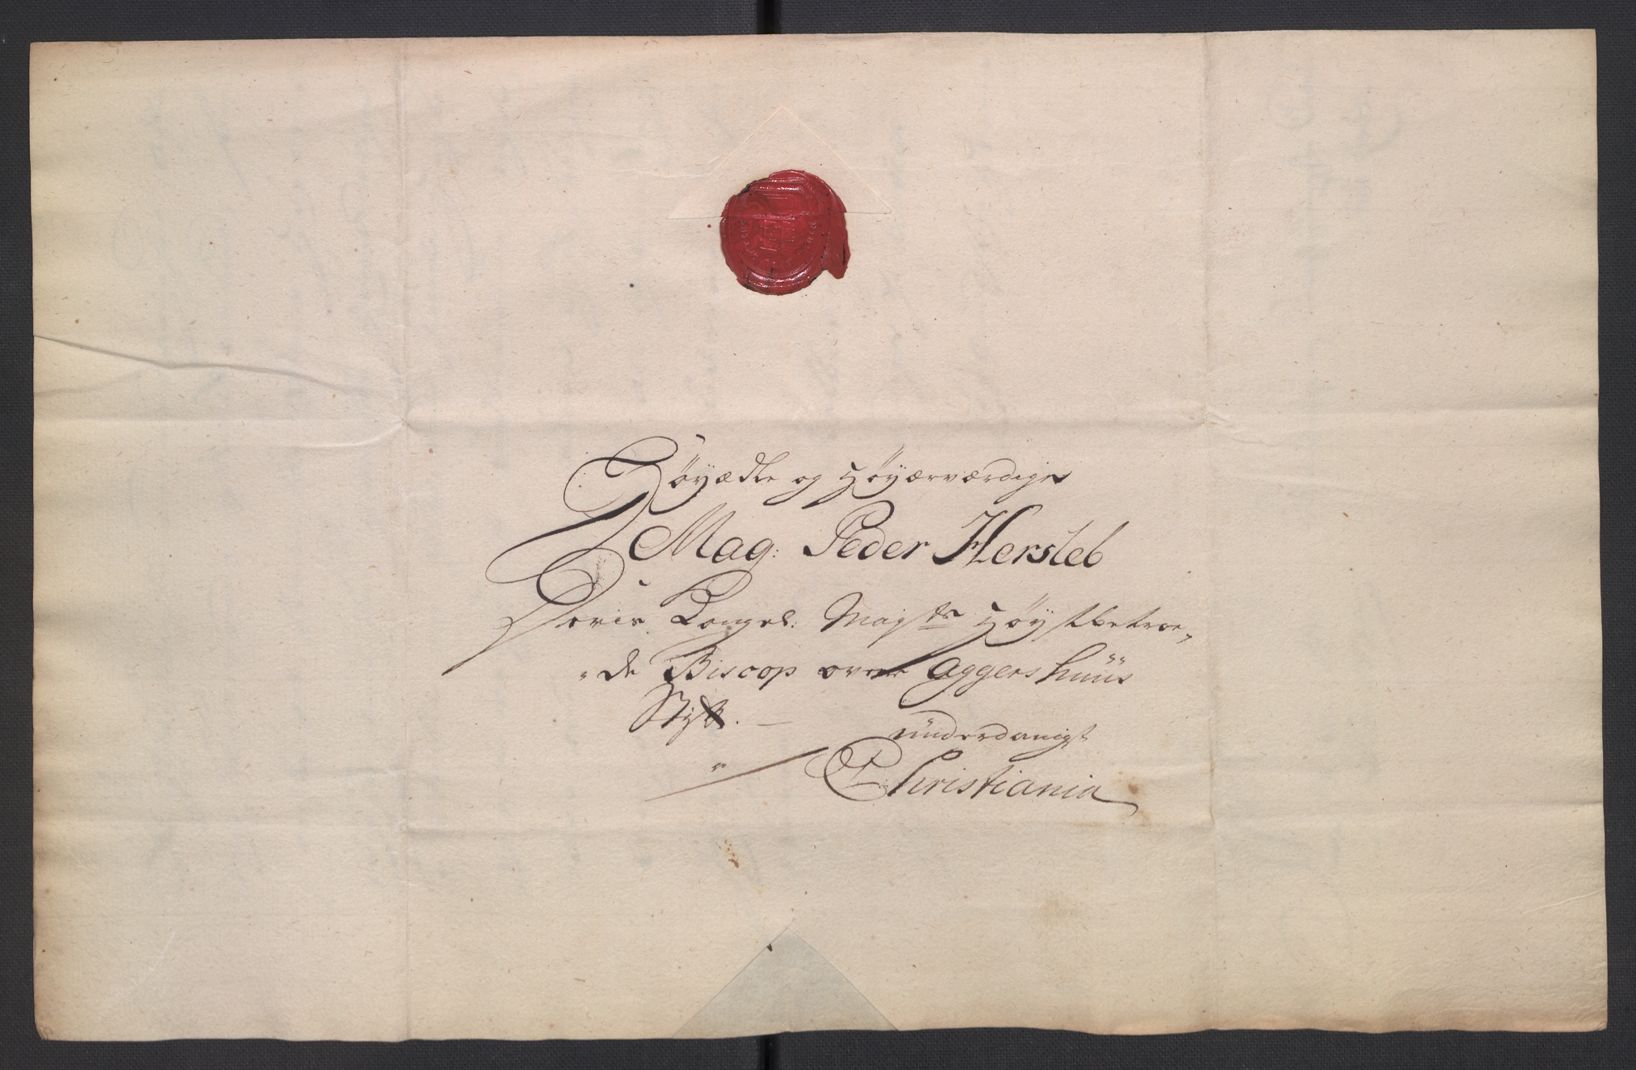 Höyædle og Höyærværdige
Mag: Peder Hersleb
Deris Kongel: Mayts Höystbetroe„
„de Biscop over Aggershuus
Stift.
underdanigst
Christiania